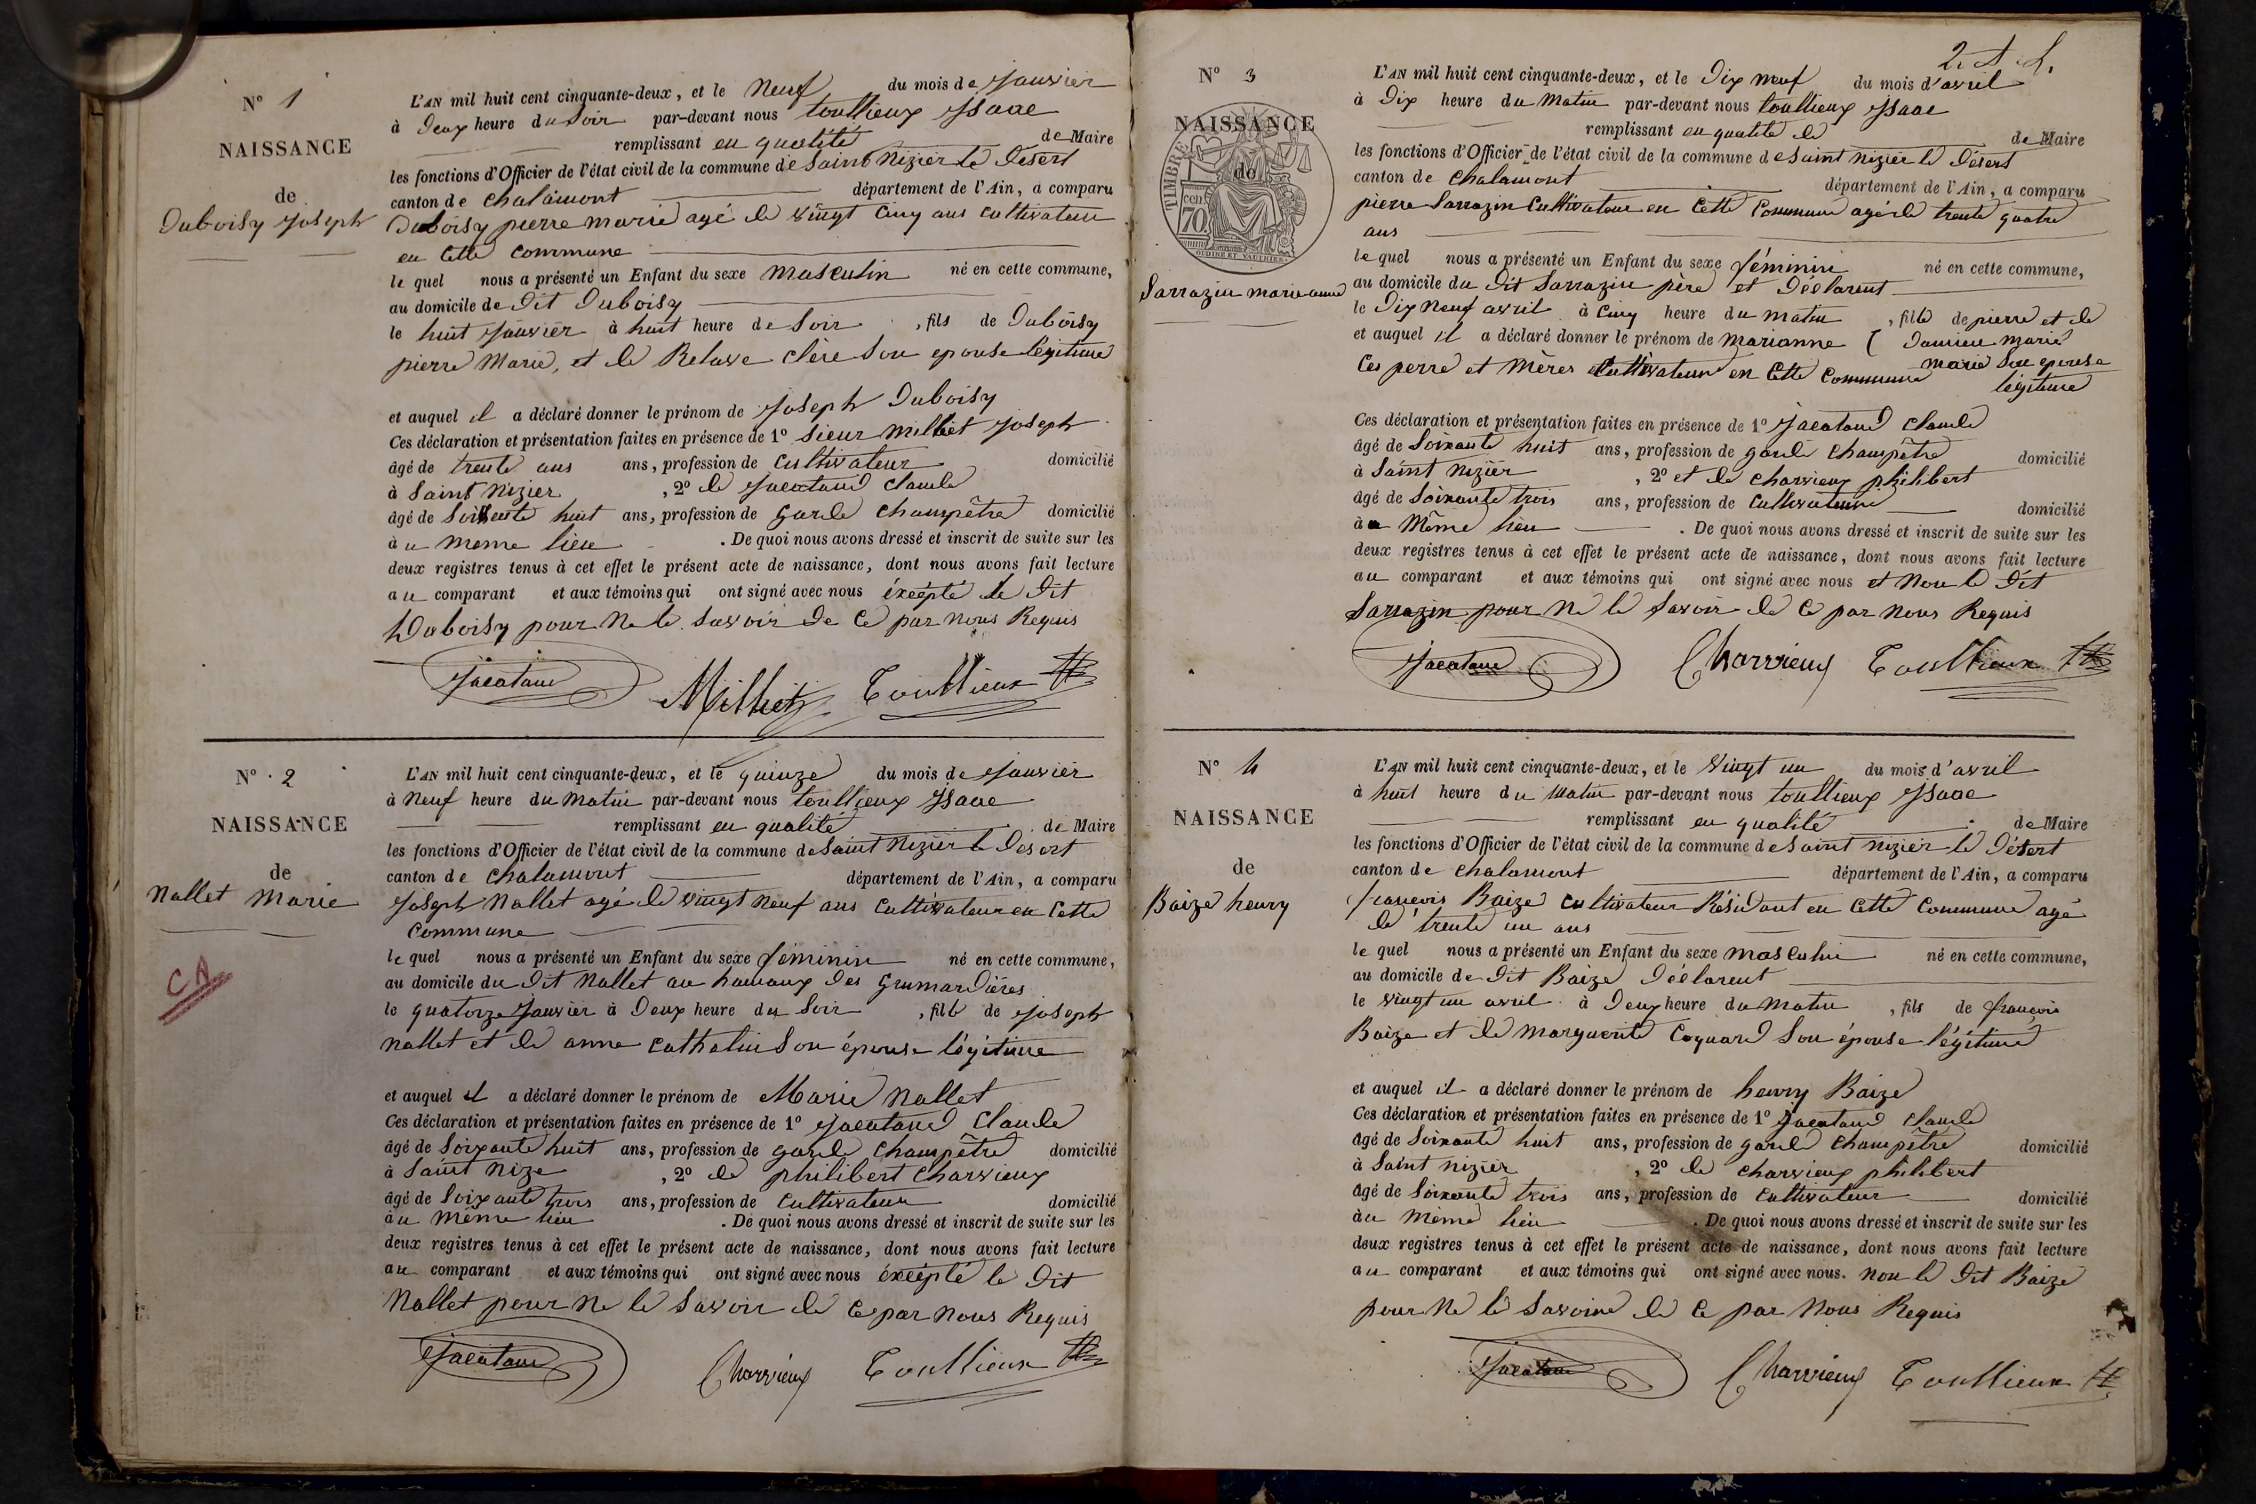 N° 1
NAISSANCE
de
Duboisy Joseph
L'AN mil huit cent cinquante-deux, et le neuf du mois de Janvier
à Deux heure du Soir par-devant nous toullieux Isaac
remplissant en qualité de Maire
les fonctions d'Officier de l'état civil de la commune de Saint Nizier le Désert
canton de chalamont département de l'Ain, a comparu
Duboisy pierre marie agé de vingt cinq ans cultivateur
en Cette commune
le quel nous a présenté un Enfant du sexe masculin né en cette commune,
au domicile de Dit Duboisy
le huit Janvier à huit heure de Soir, fils de Duboisy
pierre Marie, et de clère Son epouse légitime
et auquel il a déclaré donner le prénom de Joseph Duboisy
Ces déclaration et présentation faites en présence de 1° Sieur Milliet Joseph
âgé de trente ans ans, profession de Cultivateur domicilié
à Saint Nizier, 2° de Jacatand Claude
âgé de Soixente huit ans, profession de Garde Champêtre domicilié
à u meme lieu. De quoi nous avons dressé et inscrit de suite sur les
deux registres tenus à cet effet le présent acte de naissance, dont nous avons fait lecture
au comparant et aux témoins qui ont signé avec nous éxcépté le Dit
Duboisy pour Ne le Savoir De Ce par nous Requis
Jacatand Milliet Toullieux
N° 2
NAISSANCE
de
Nallet Marie
CA
L'AN mil huit cent cinquante-deux, et le quinze du mois de Janvier
à Neuf heure du Matin par-devant nous toullieux Isaac
remplissant en qualité de Maire
les fonctions d'Officier de l'état civil de la commune de Saint Nizier le Desert
canton de Chalamont département de l'Ain, a comparu
Joseph Nallet agé de vingt Neuf ans Cultivateur en Cette
Commune
le quel nous a présenté un Enfant du sexe féminin né en cette commune,
au domicile du Dit Nallet au hamaux des Grumardières
le quatorze Janvier à Deux heure du Soir, fille de Joseph
Nallet et de anne Cathelin Son épouse légitime
et auquel il a déclaré donner le prénom de Marie Nallet
Ces déclaration et présentation faites en présence de 1° Jacatand Claude
âgé de Soixante huit ans, profession de garde Champêtre domicilié
à Saint Nize, 2° de philibert Charvieux
âgé de Soixante trois ans, profession de Cultivateur domicilié
àu même lieu. De quoi nous avons dressé et inscrit de suite sur les
deux registres tenus à cet effet le présent acte de naissance, dont nous avons fait lecture
au comparant et aux témoins qui ont signé avec nous éxcépté le Dit
Nallet pour Ne le Savoir de Ce par nous Requis
Jacatand Charvieux Toullieux
2.
N° 3
NAISSANCE
de
TIMBRE
70 cen
OUDINÉ ET VAUTHRIN
Sarrazin marie anne
L'AN mil huit cent cinquante-deux, et le Dix neuf du mois d'avril
à Dix heure du Matin par-devant nous toullieux Isaac
remplissant en qualité de de Maire
les fonctions d'Officier de l'état civil de la commune de Saint nizier le Désert
canton de Chalamont département de l'Ain, a comparu
pierre Sarrazin Cultivateur en Cette Commune agé de trente quatre
ans
le quel nous a présenté un Enfant du sexe féminin né en cette commune,
au domicile du Dit Sarrazin père et Déclarent
le Dix Neuf avril à Cinq heure du matin, fille de pierre et de
et auquel il a déclaré donner le prénom de marianne ( Damien marie
marie Son epouse
Ces perre et Mères Cultivateurs en Cette Commune légitime
Ces déclaration et présentation faites en présence de 1° Jacatand Claude
âgé de Soixante huit ans, profession de garde Champêtre domicilié
à Saint Nizier, 2° et de charvieux philibert
âgé de Soixante trois ans, profession de Cultivateur domicilié
àu Même lieu. De quoi nous avons dressé et inscrit de suite sur les
deux registres tenus à cet effet le présent acte de naissance, dont nous avons fait lecture
au comparant et aux témoins qui ont signé avec nous et Non le Dit
Sarrazin pour Ne le Savoir de Ce par nous Requis
Jacatand Charvieux Toullieux
N° 4
NAISSANCE
de
Baize henry
L'AN mil huit cent cinquante-deux, et le Vingt un du mois d'avril
à huit heure du Matin par-devant nous toullieux Isaac
remplissant en qualité de Maire
les fonctions d'Officier de l'état civil de la commune de Saint nizier le Désert
canton de Chalamont département de l'Ain, a comparu
françois Baize Cultivateur Résidant en Cette Commune agé
de trente un ans
le quel nous a présenté un Enfant du sexe masculin né en cette commune,
au domicile de Dit Baize Déclarent
le vingt un avril à Deux heure du Matin, fils de françois
Baize et de Marguerite Coquard Son épouse légitime
et auquel il a déclaré donner le prénom de henry Baize
Ces déclaration et présentation faites en présence de 1° Jacatand Claude
âgé de Soixante huit ans, profession de garde Champêtre domicilié
à Saint nizier, 2° de charvieux philibert
âgé de Soixante trois ans, profession de Cultivateur domicilié
àu Même lieu. De quoi nous avons dressé et inscrit de suite sur les
deux registres tenus à cet effet le présent acte de naissance, dont nous avons fait lecture
au comparant et aux témoins qui ont signé avec nous. non le Dit Baize
pour Ne le Savoire de Ce par Nous Requis
Jacatand Charvieux Toullieux